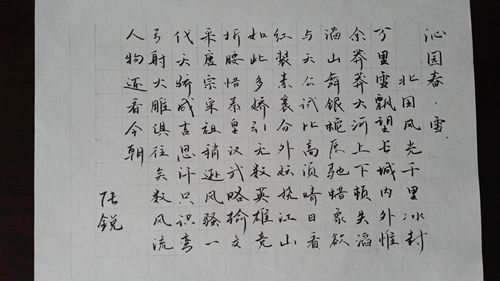 沁园春·雪
北国风光千里冰封
万里雪飘望长城内外惟
余莽莽大河上下顿失滔
滔山舞银蛇原驰蜡象欲
与天公试比高须晴日看
红装素裹分外妖娆江山
如此多娇引无数英雄竞
折腰惜秦皇汉武略输文
采唐宗宋祖稍逊风骚一
代天骄成吉思汗只识弯
弓射大雕俱往矣数风流
人物还看今朝
张锐